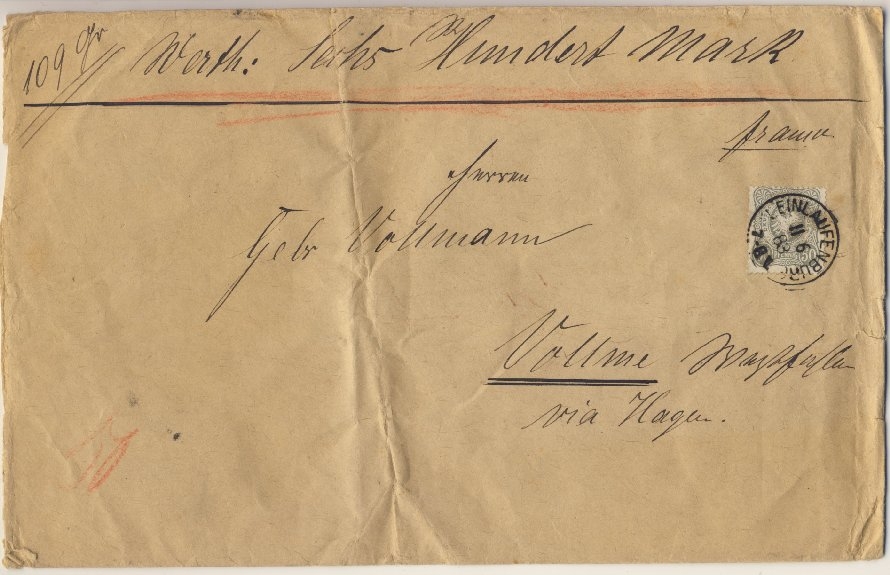 109 Gr
Werth: Sechs Hundert Mark
franco
Herren
Gebr Vollmann
KLEINLAUFENBURG
11 6
83
Vollme Westfalen
via Hagen.